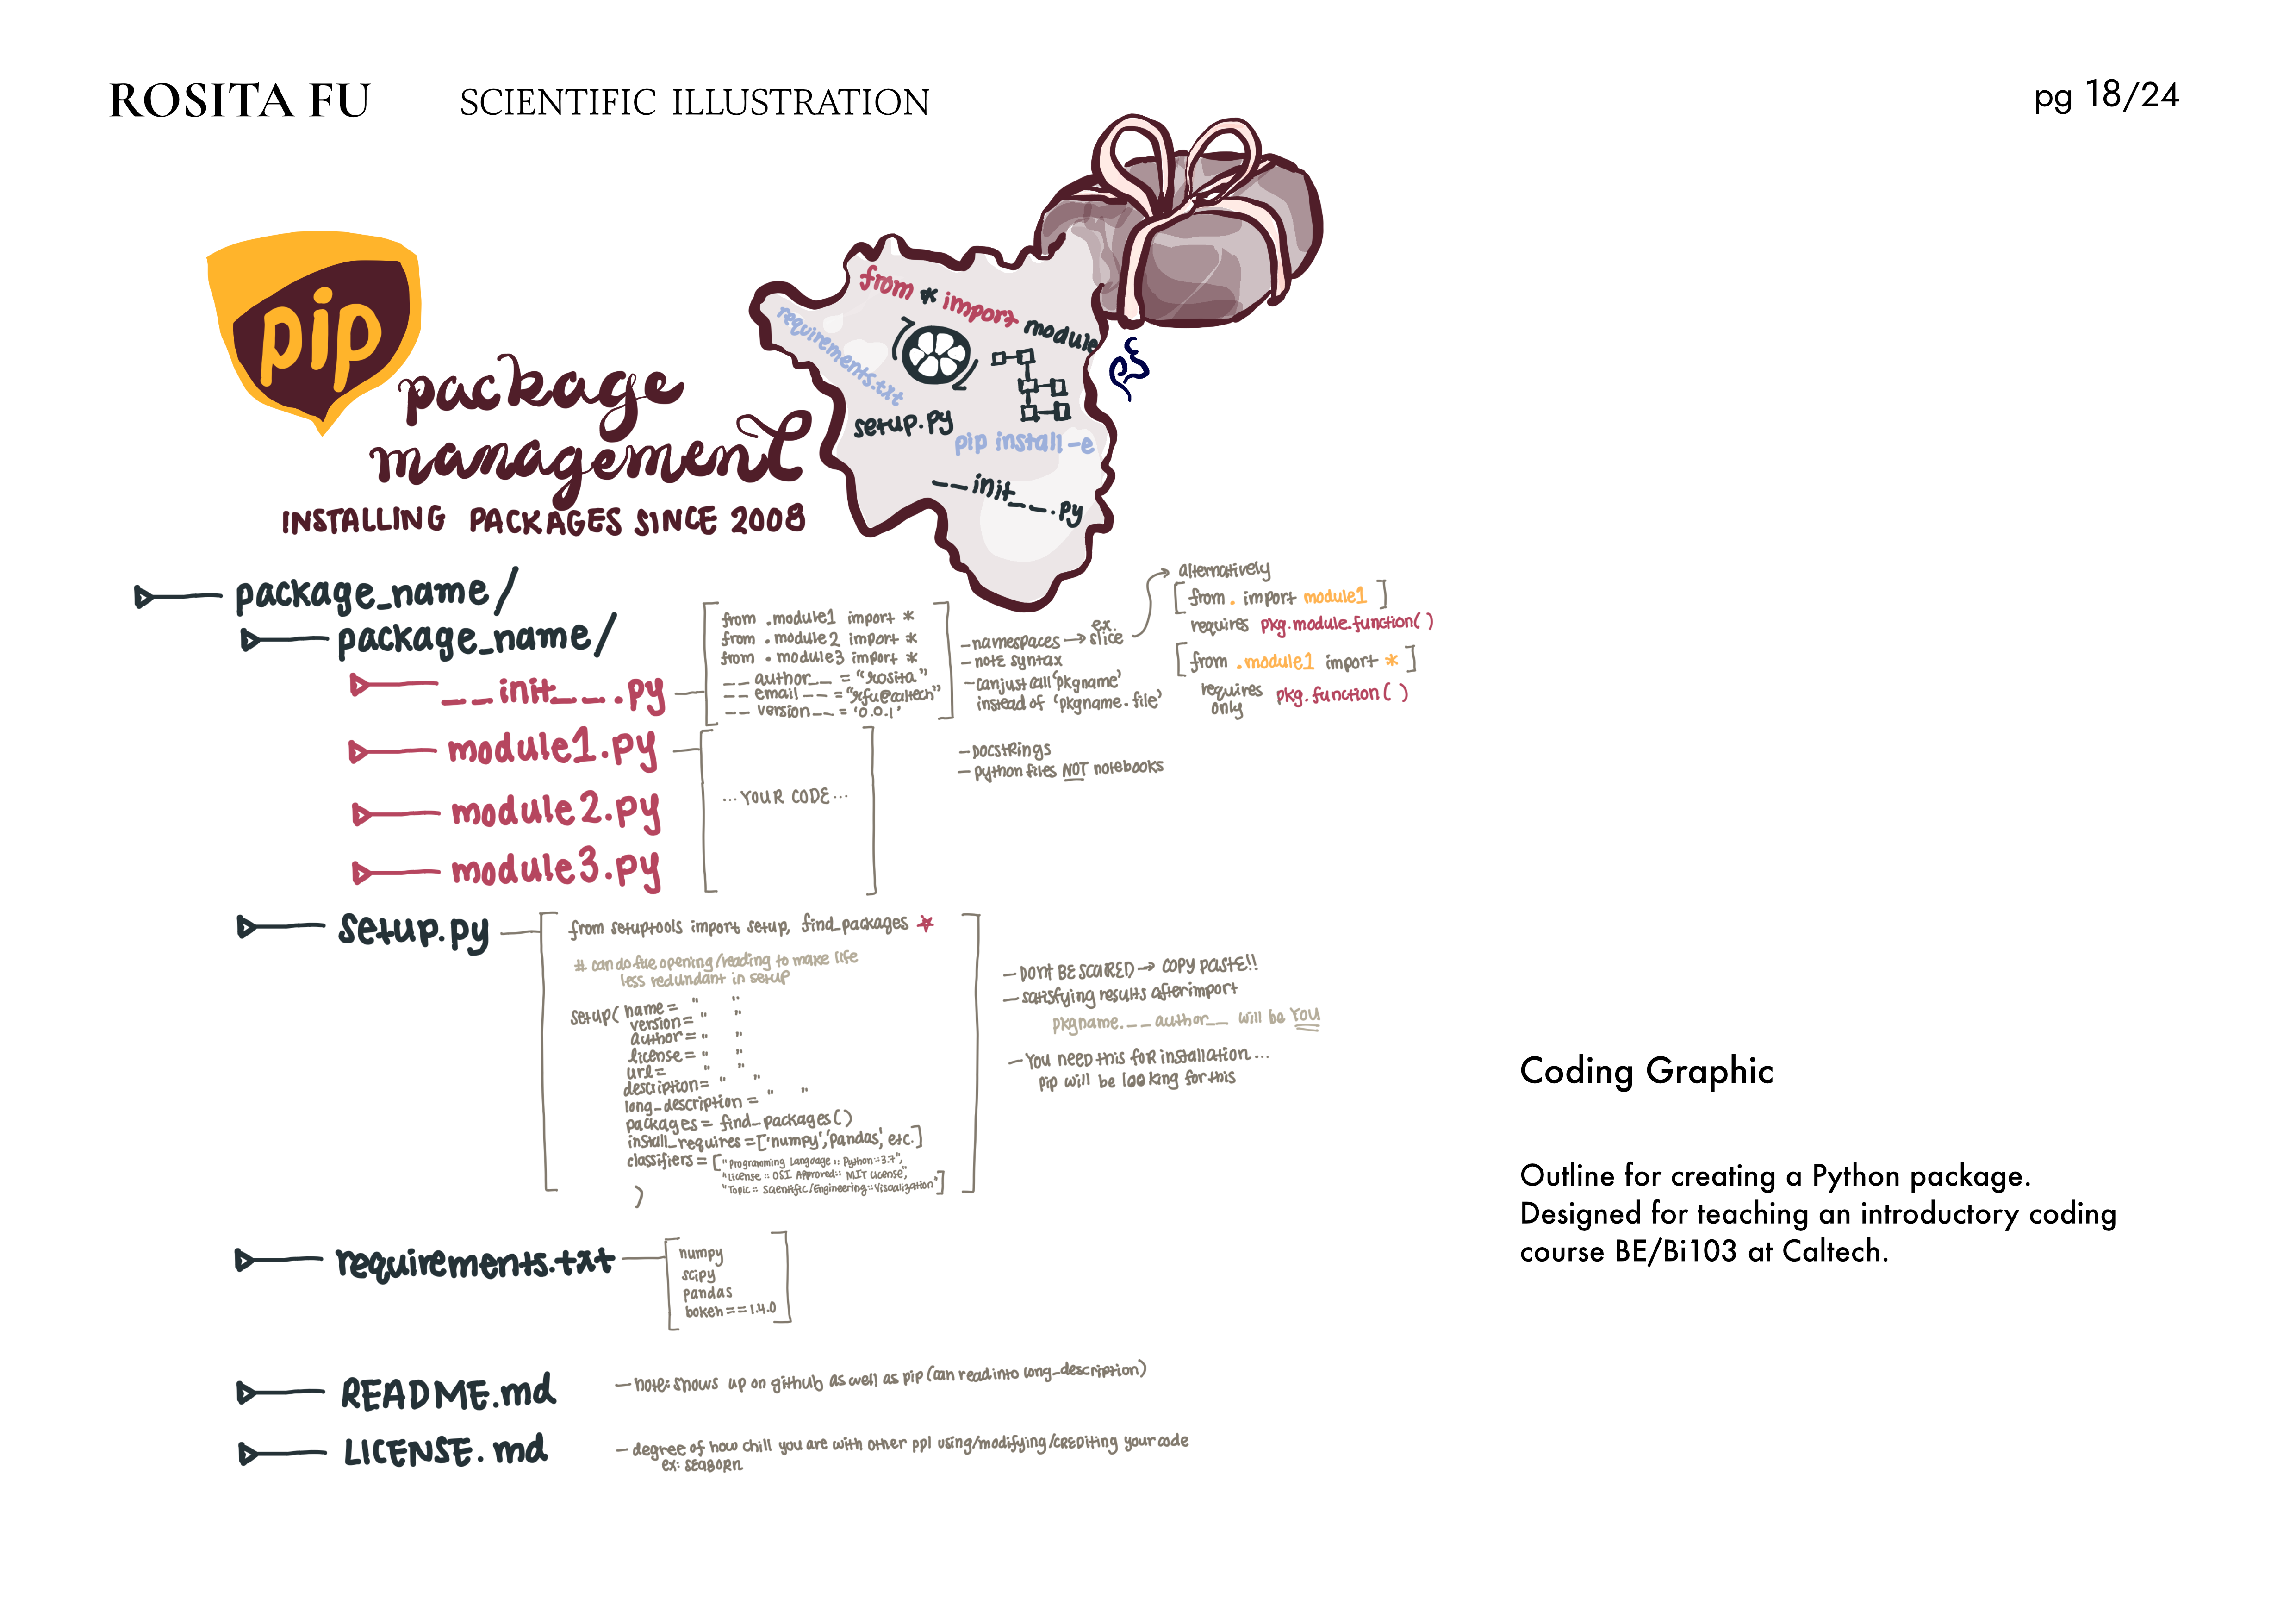 ROSITA FU
SCIENTIFIC ILLUSTRATION
pg 18/24
pip
package
management
INSTALLING PACKAGES SINCE 2008
from * import module
requirements.txt
setup.py
pip install -e
__init__.py
package_name/
package_name/
__init__.py
from .module1 import *
from .module2 import *
from .module3 import *
__author__ = "rosita"
__email__ = "rfu@caltech"
__version__ = '0.0.1'
- namespaces → ex. slice
- note syntax
- can just call 'pkgname'
instead of 'pkgname.file'
alternatively
[from . import module1]
requires pkg.module.function()
[from .module1 import *]
requires only pkg.function()
module1.py
...YOUR CODE...
- DOCSTRINGS
- python files NOT notebooks
module2.py
module3.py
setup.py
from setuptools import setup, find_packages
# can do file opening/reading to make life
less redundant in setup
setup( name = " "
version = " "
author = " "
license = " "
url = " "
description = " "
long_description = " "
packages = find_packages()
install_requires = ['numpy', 'pandas', etc.]
classifiers = ["Programming Language :: Python :: 3.7",
"License :: OSI Approved :: MIT License",
"Topic :: Scientific/Engineering :: Visualization"]
)
- DONT BE SCARED → COPY PASTE!!
- satisfying results after import
pkgname.__author__ will be YOU
- You NEED this FOR INSTALLATION...
pip will be looking for this
requirements.txt
numpy
scipy
pandas
bokeh == 1.4.0
README.md
- note: shows up on github as well as pip (can read into long_description)
LICENSE.md
- degree of how chill you are with other ppl using/modifying/CREDITING your code
ex: SEABORN
Coding Graphic
Outline for creating a Python package.
Designed for teaching an introductory coding
course BE/Bi103 at Caltech.